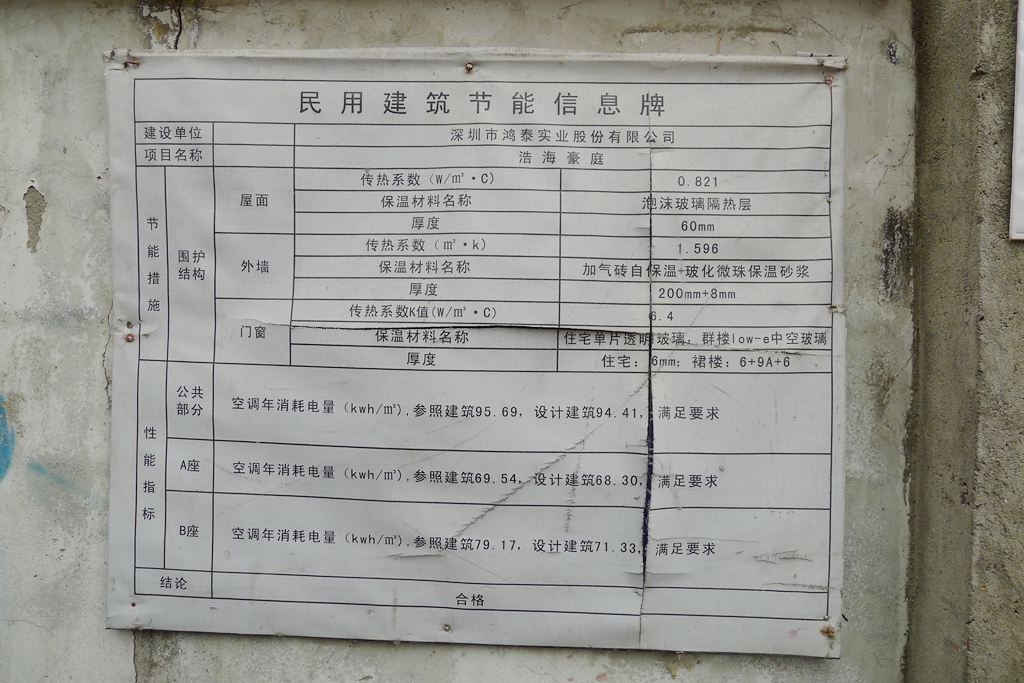 民用建筑节能信息牌
建设单位 深圳市鸿泰实业股份有限公司
项目名称 浩海豪庭
节能措施 围护结构 屋面 传热系数（W/㎡·C） 0.821
保温材料名称 泡沫玻璃隔热层
厚度 60mm
外墙 传热系数（㎡·k） 1.596
保温材料名称 加气砖自保温+玻化微珠保温砂浆
厚度 200mm+8mm
门窗 传热系数K值(W/㎡·C) 6.4
保温材料名称 住宅单片透明玻璃，群楼low-e中空玻璃
厚度 住宅：6mm；裙楼：6+9A+6
性能指标 公共部分 空调年消耗电量（kwh/㎡),参照建筑95.69，设计建筑94.41，满足要求
A座 空调年消耗电量（kwh/㎡),参照建筑69.54，设计建筑68.30，满足要求
B座 空调年消耗电量（kwh/㎡),参照建筑79.17，设计建筑71.33，满足要求
结论 合格